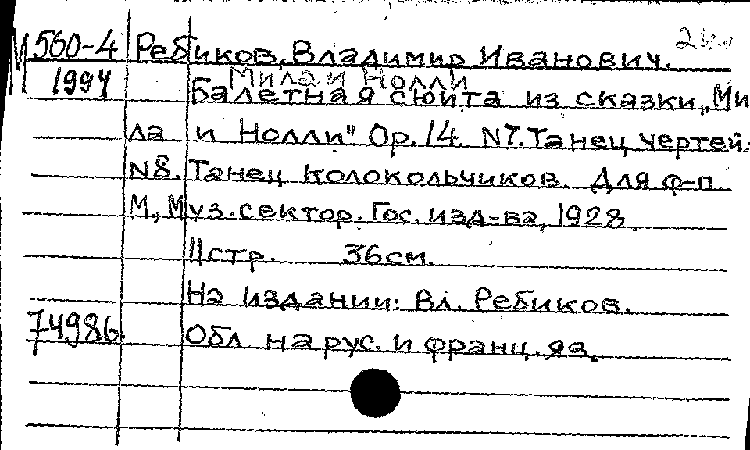 М 560-4 Ребиков, Владимир Иванович.
Мила и Нолли
1994 Балетная сюита из сказки „Ми
ла и Нолли" Ор.14 N7. Танец чертей.
N8. Танец колокольчиков. Для ф-п
М., Муз. сектор. Гос. изд-ва, 1928
11стр. 36см.
На издании: Вл. Ребиков.
74986. Обл на рус. и франц. яз.